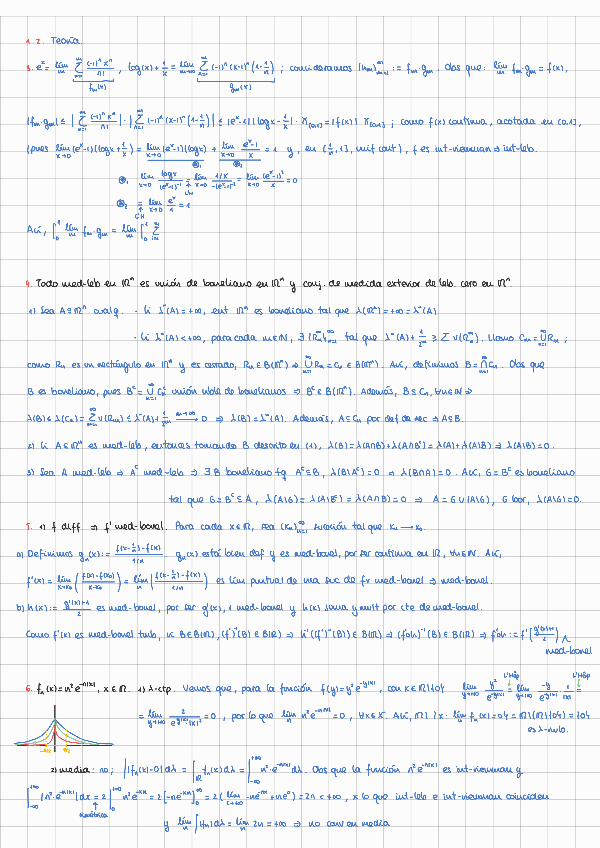 1. 2. Teoría.
3. eˣ = lím_m Σ (-1)ⁿ xⁿ / n! , log(x) + 1/x = lím Σ (-1)ⁿ (x-1)ⁿ (1 - 1/n) ; consideramos {h_m} := f_m·g_m. Obs que: lím_m f_m·g_m = f(x),
f_m(x) g_m(x)
; como f(x) continua, acotada en (0,1],
(pues lím_{x→0} (eˣ-1)(log x + 1/x) = lím_{x→0} (eˣ-1)(log x) + lím_{x→0} (eˣ-1)/x = 1 y, en
lím_{x→0} eˣ/1 = 1
Así, ∫₀¹ lím_m f_m·g_m = lím_m ∫₀¹ Σ
4. Todo med-leb en ℝⁿ es unión de boreliano en ℝⁿ y conj. de medida exterior de leb. cero en ℝⁿ.
1) Sea A⊆ℝⁿ cualq. - Si λ*(A) = +∞, ent ℝⁿ es boreliano tal que λ(ℝⁿ) = +∞ = λ*(A)
- Si λ*(A) < +∞, para cada m∈ℕ, ∃ tal que
como Rₙ es un rectángulo en ℝⁿ y es cerrado, Rₙ∈B(ℝⁿ) ⇒ ∪Rₙ = Cₙ ∈ B(ℝⁿ). Así, definimos B = ∩Cₙ. Obs que
B es boreliano, pues Bᶜ = ∪Cₙᶜ unión nble de borelianos ⇒ Bᶜ∈B(ℝⁿ). Además, B⊆Cₙ, ∀n∈ℕ ⇒
⇒ λ(B) = λ*(A). Además, A⊆Cₙ por def de rec ⇒ A⊆B.
2) Si A∈ℝⁿ es med-leb, entonces tomando B descrito en (1), λ(B) = λ(A∩B) + λ(A∩Bᶜ) = λ(A) + λ(A\B) ⇒ λ(A\B) = 0.
3) Sea A med-leb ⇒ Aᶜ med-leb ⇒ ∃ B boreliano tq Aᶜ⊆B, λ(B\Aᶜ) = 0 ⇒ λ(B∩A) = 0. Así, G = Bᶜ es boreliano
tal que G = Bᶜ⊆A, λ(A\G) = λ(A\Bᶜ) = λ(A∩B) = 0 ⇒ A = G∪(A\G), G bor, λ(A\G) = 0.
5. a) f diff ⇒ f' med-borel. Para cada x∈ℝ, sea (xₙ) sucesión tal que xₙ → x₀.
a) Definimos gₙ(x) := (f(x-1/n) - f(x)) / 1/n. gₙ(x) está bien def y es med-borel, por ser continua en ℝ, ∀n∈ℕ. Así,
f'(x) = lím_{x→x₀} ((f(x)-f(x₀))/(x-x₀)) = lím_n ((f(x-1/n)-f(x))/1/n) es lím puntual de una suc de fx med-borel ⇒ med-borel.
b) h(x) := (g'(x)+1)/2 es med-borel, por ser g'(x), 1 med-borel y h(x) suma y mult por cte de med-borel.
Como f'(x) es med-borel tmb, si B∈B(ℝ), (f')⁻¹(B)∈B(ℝ) ⇒ h⁻¹((f')⁻¹(B))∈B(ℝ) ⇒ (f'∘h)⁻¹(B)∈B(ℝ) ⇒ f'∘h := f'((g'(x)+1)/2)
med-borel
6. fₙ(x) = n² e^{-n|x|}, x∈ℝ. 1) λ-ctp. Vemos que, para la función f(y) = y² e^{-y|x|}, con x∈ℝ\{0}
= lím_{y→+∞} 2/(e^{y|x|}|x|²) = 0 , por lo que lím_n n² e^{-n|x|} = 0, ∀x∈X. Así, ℝ\{x: lím_n fₙ(x) = 0} = ℝ\(ℝ\{0}) = {0}
es λ-nulo.
2) media: no; ∫|fₙ(x)-0|dλ = ∫_ℝ fₙ(x)dλ = ∫ n²·e^{-n|x|}dλ. Obs que la función n² e^{-n|x|} es int-riemman y
∫|n²·e^{-n|x|}|dx = 2∫₀^{+∞} n² e^{-nx} = 2[-n e^{-nx}]₀^{+∞} = 2(lím -n e^{-nx} + n e⁰) = 2n < +∞, x lo que int-leb e int-riemman coinciden
simétrica
y lím_n ∫|fₙ|dλ = lím_n 2n = +∞ ⇒ no conv en media